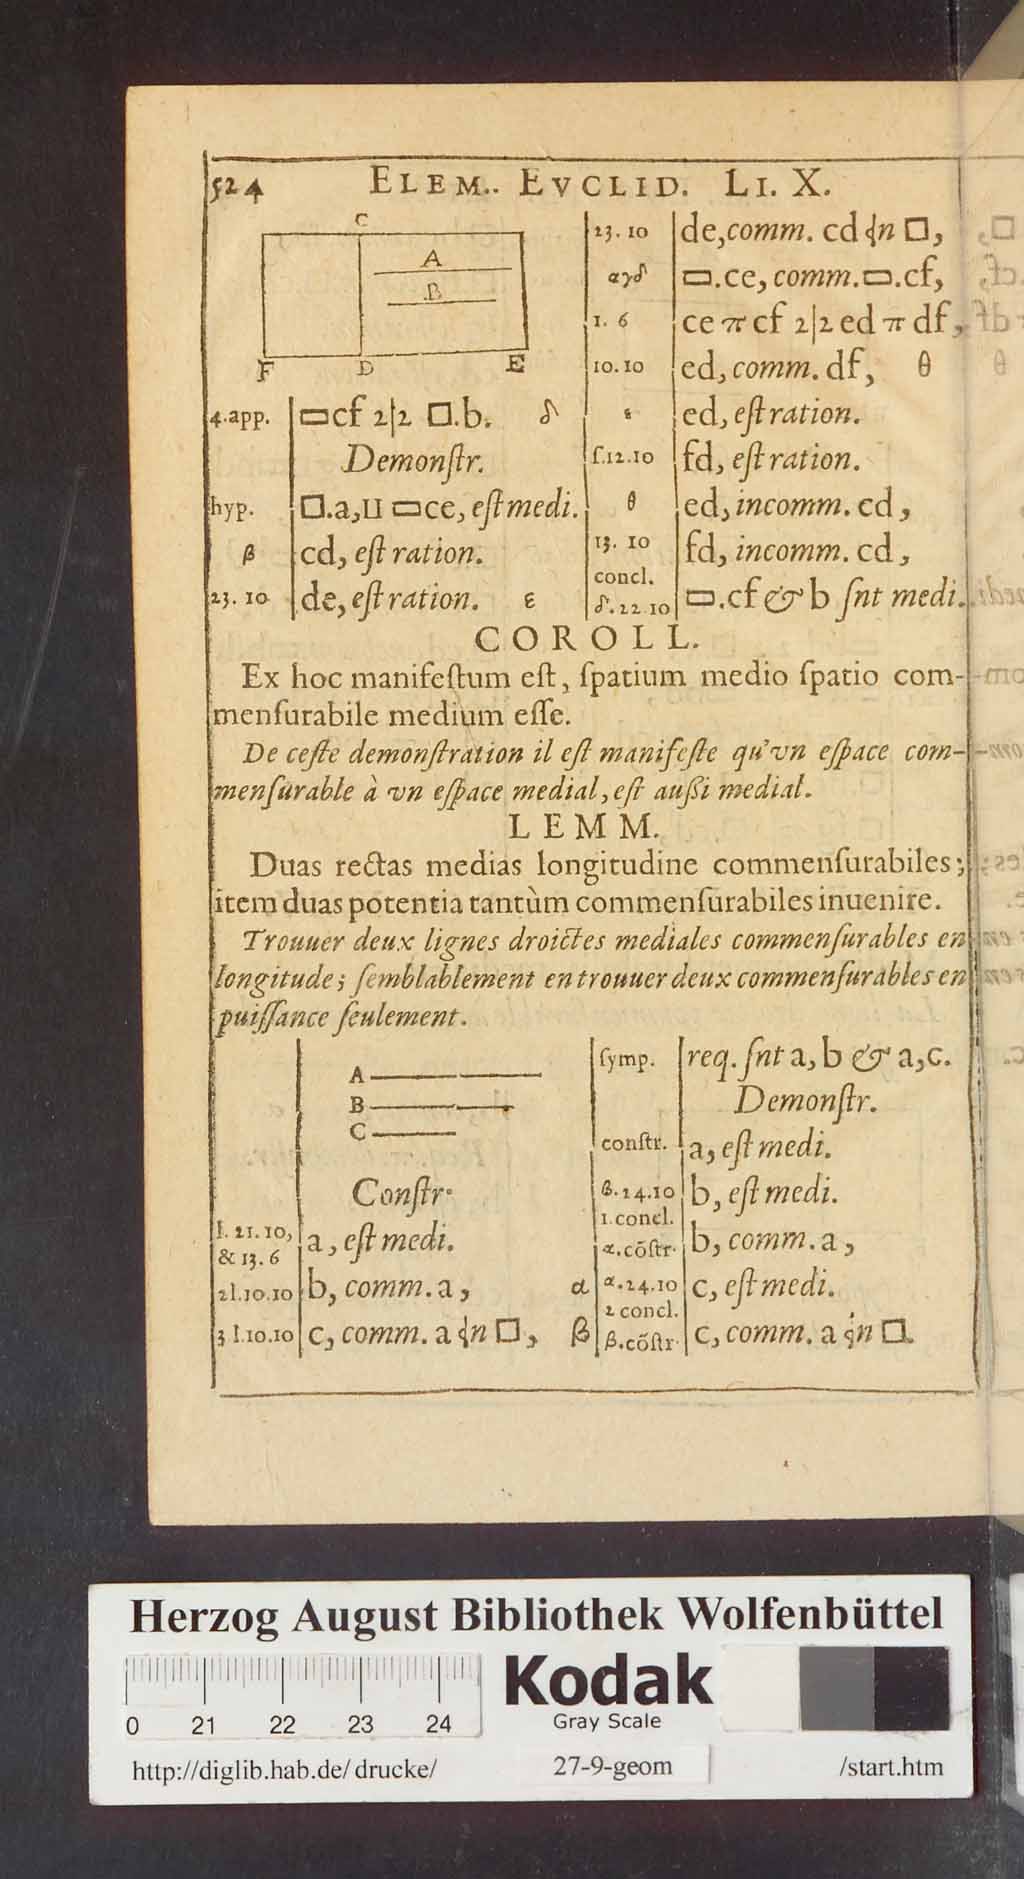 524 ELEM.. EVCLID. LI. X.
C
A
B
F D E
4.app. ▭cf 2|2 □.b. δ
Demonſtr.
hyp. □.a,⊔ ▭ce, eſt medi.
β cd, eſt ration.
23. 10 de, eſt ration. ε
23. 10 de, comm. cd ɋn □,
αγδ ▭.ce, comm. ▭.cf,
1. 6 ce π cf 2|2 ed π df,
10.10 ed, comm. df, θ
ε ed, eſt ration.
ſ.12.10 fd, eſt ration.
θ ed, incomm. cd,
13. 10 fd, incomm. cd,
concl.
δ.22.10 ▭.cf & b ſnt medi.
COROLL.
Ex hoc manifeſtum eſt, ſpatium medio ſpatio com-
menſurabile medium eſſe.
De ceſte demonſtration il eſt manifeſte qu'vn eſpace com-
menſurable à vn eſpace medial, eſt auſſi medial.
LEMM.
Duas rectas medias longitudine commenſurabiles;
item duas potentia tantùm commenſurabiles inuenire.
Trouuer deux lignes droictes mediales commenſurables en
longitude; ſemblablement en trouuer deux commenſurables en
puiſſance ſeulement.
A
B
C
Conſtr.
l. 21.10,
& 13. 6 a, eſt medi.
2l.10.10 b, comm. a, α
3 l.10.10 c, comm. a ɋn □, β
ſymp. req. ſnt a, b & a, c.
Demonſtr.
conſtr. a, eſt medi.
β.24.10 b, eſt medi.
1.concl.
α.cõſtr. b, comm. a,
α.24.10 c, eſt medi.
2 concl.
β.cõſtr. c, comm. a ɋn □.
Herzog August Bibliothek Wolfenbüttel
Kodak
Gray Scale
0 21 22 23 24
http://diglib.hab.de/drucke/ 27-9-geom /start.htm